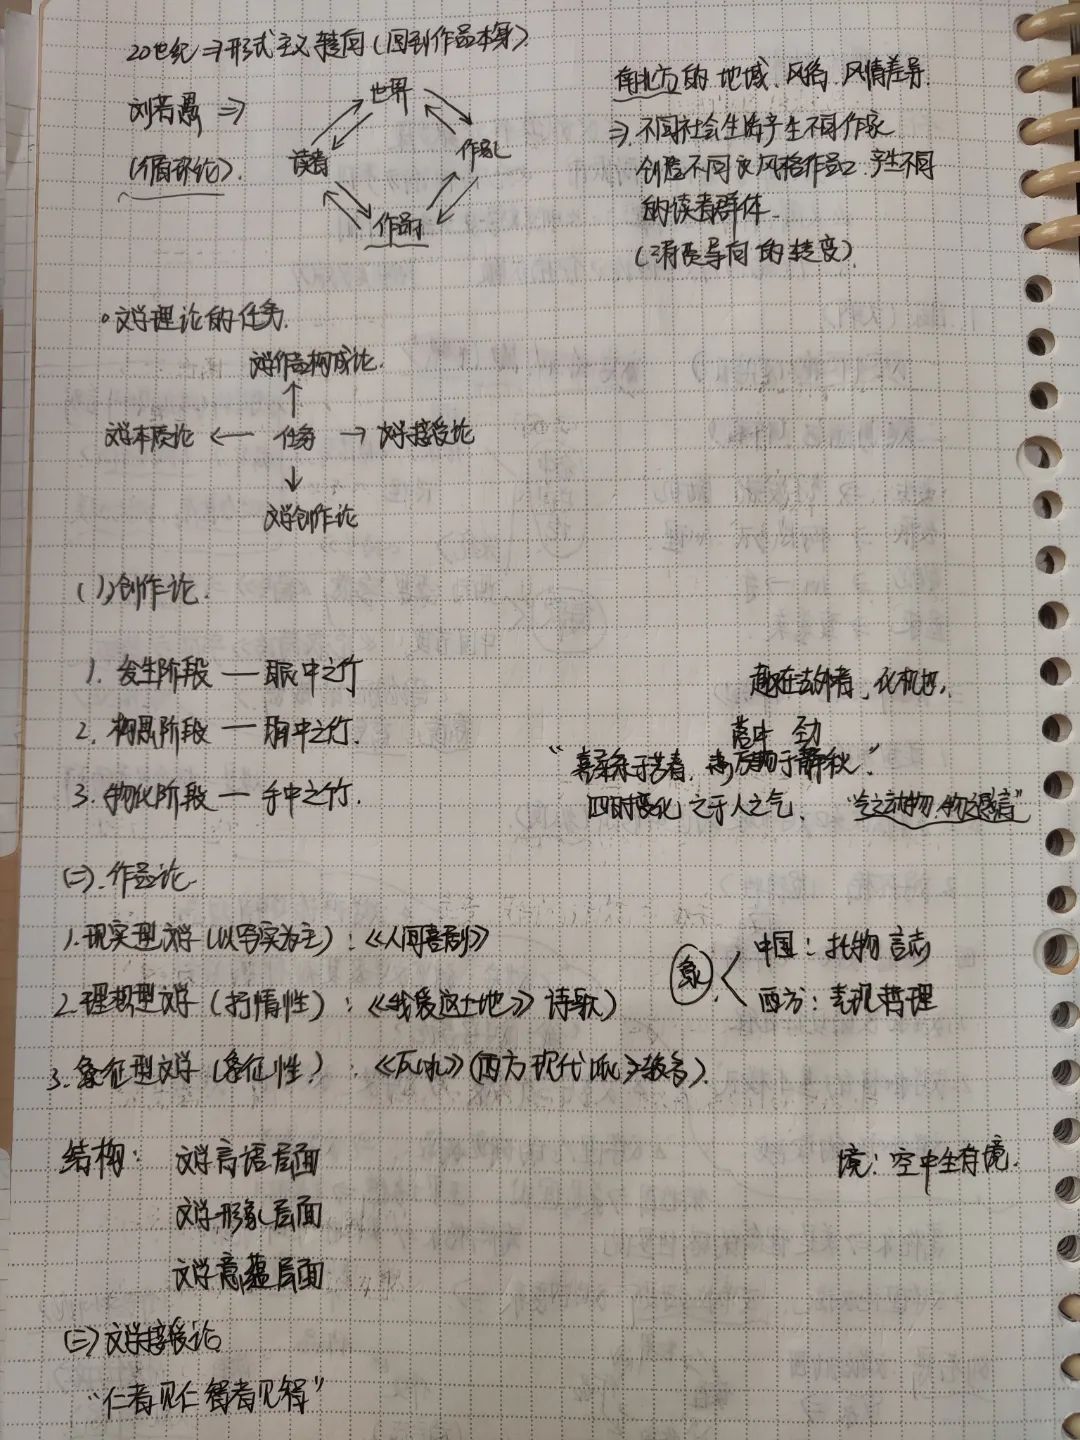 20世纪 ⇒ 形式主义转向(回到作品本身)
刘若愚 ⇒
(循环论).
世界
作家
读者
作品
南北方的地域、风俗、风情差异.
⇒ 不同社会生活产生不同作家
创造不同文风格作品 产生不同
的读者群体.
(消费导向的转变)
。文学理论的任务.
文学作品构成论.
文学本质论 ← 任务 → 文学接受论
文学创作论
(1)创作论.
1. 发生阶段 — 眼中之竹
2. 构思阶段 — 胸中之竹.
3. 物化阶段 — 手中之竹.
趣在法外者,化机也.
落叶 劲
"喜柔条于芳春, 悲 秋."
四时变化 之于人之气、 "气之动物,物之感言"
(二).作品论.
1.现实型文学(以写实为主):《人间喜剧》
2.理想型文学(抒情性):《我爱这土地》诗歌)
3.象征型文学(象征性):《 》(西方现代派 较多).
象
中国:托物言志
西方:表现哲理
结构: 文学言语层面
文学形象层面
文学意蕴层面
境:空中生有境.
(三)文学接受论
"仁者见仁 智者见智"